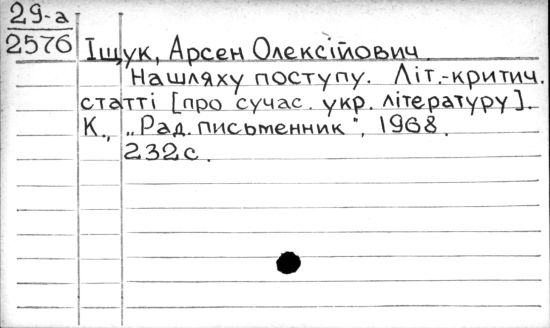 29-а
2576
Іщук, Арсен Олексійович
На шляху поступу. Літ.-критич.
статті [про сучас. укр. літературу].
К., „Рад. письменник", 1968.
232с.